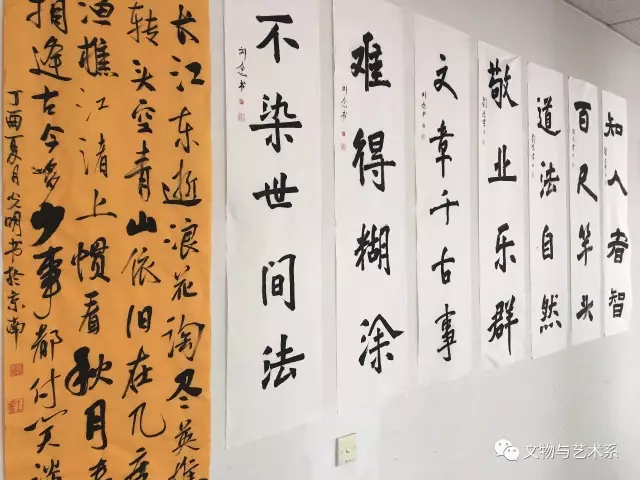 知人者智
百尺竿头
道法自然
敬业乐群
文章千古事
难得糊涂
不染世间法
长江东逝浪花淘尽英雄
转头空青山依旧在几度
渔樵江渚上惯看秋月春
相逢古今多少事都付笑谈
丁酉夏月光明书於京南
文物与艺术系